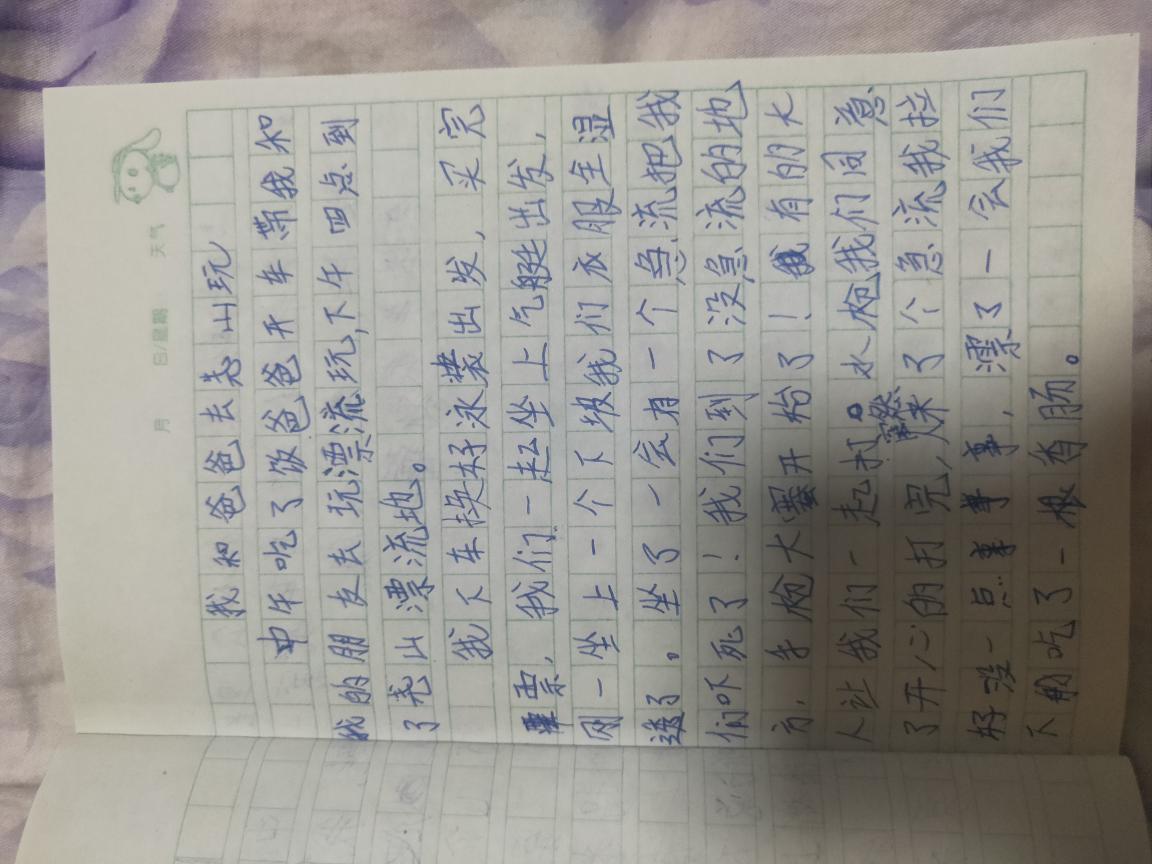 月 日/星期 天气
我和爸爸去尧山玩
中午吃了饭爸爸开车带我和
我的朋友去玩漂流玩,下午四点到
了尧山漂流地。
我下车换好泳装出发,买完
票,我们一起坐上气艇出发,
刚一坐上一个下坡我们衣服全湿
透了。坐了一会有一个急流把我
们吓死了!我们到了没急流的地
方,手枪大赛开始了!我有的大
人让我们一起打。水枪我们同意
了开心的打完,突然来了个急流我拉
好没一点事,漂了一会我们
下船吃了一根香肠。